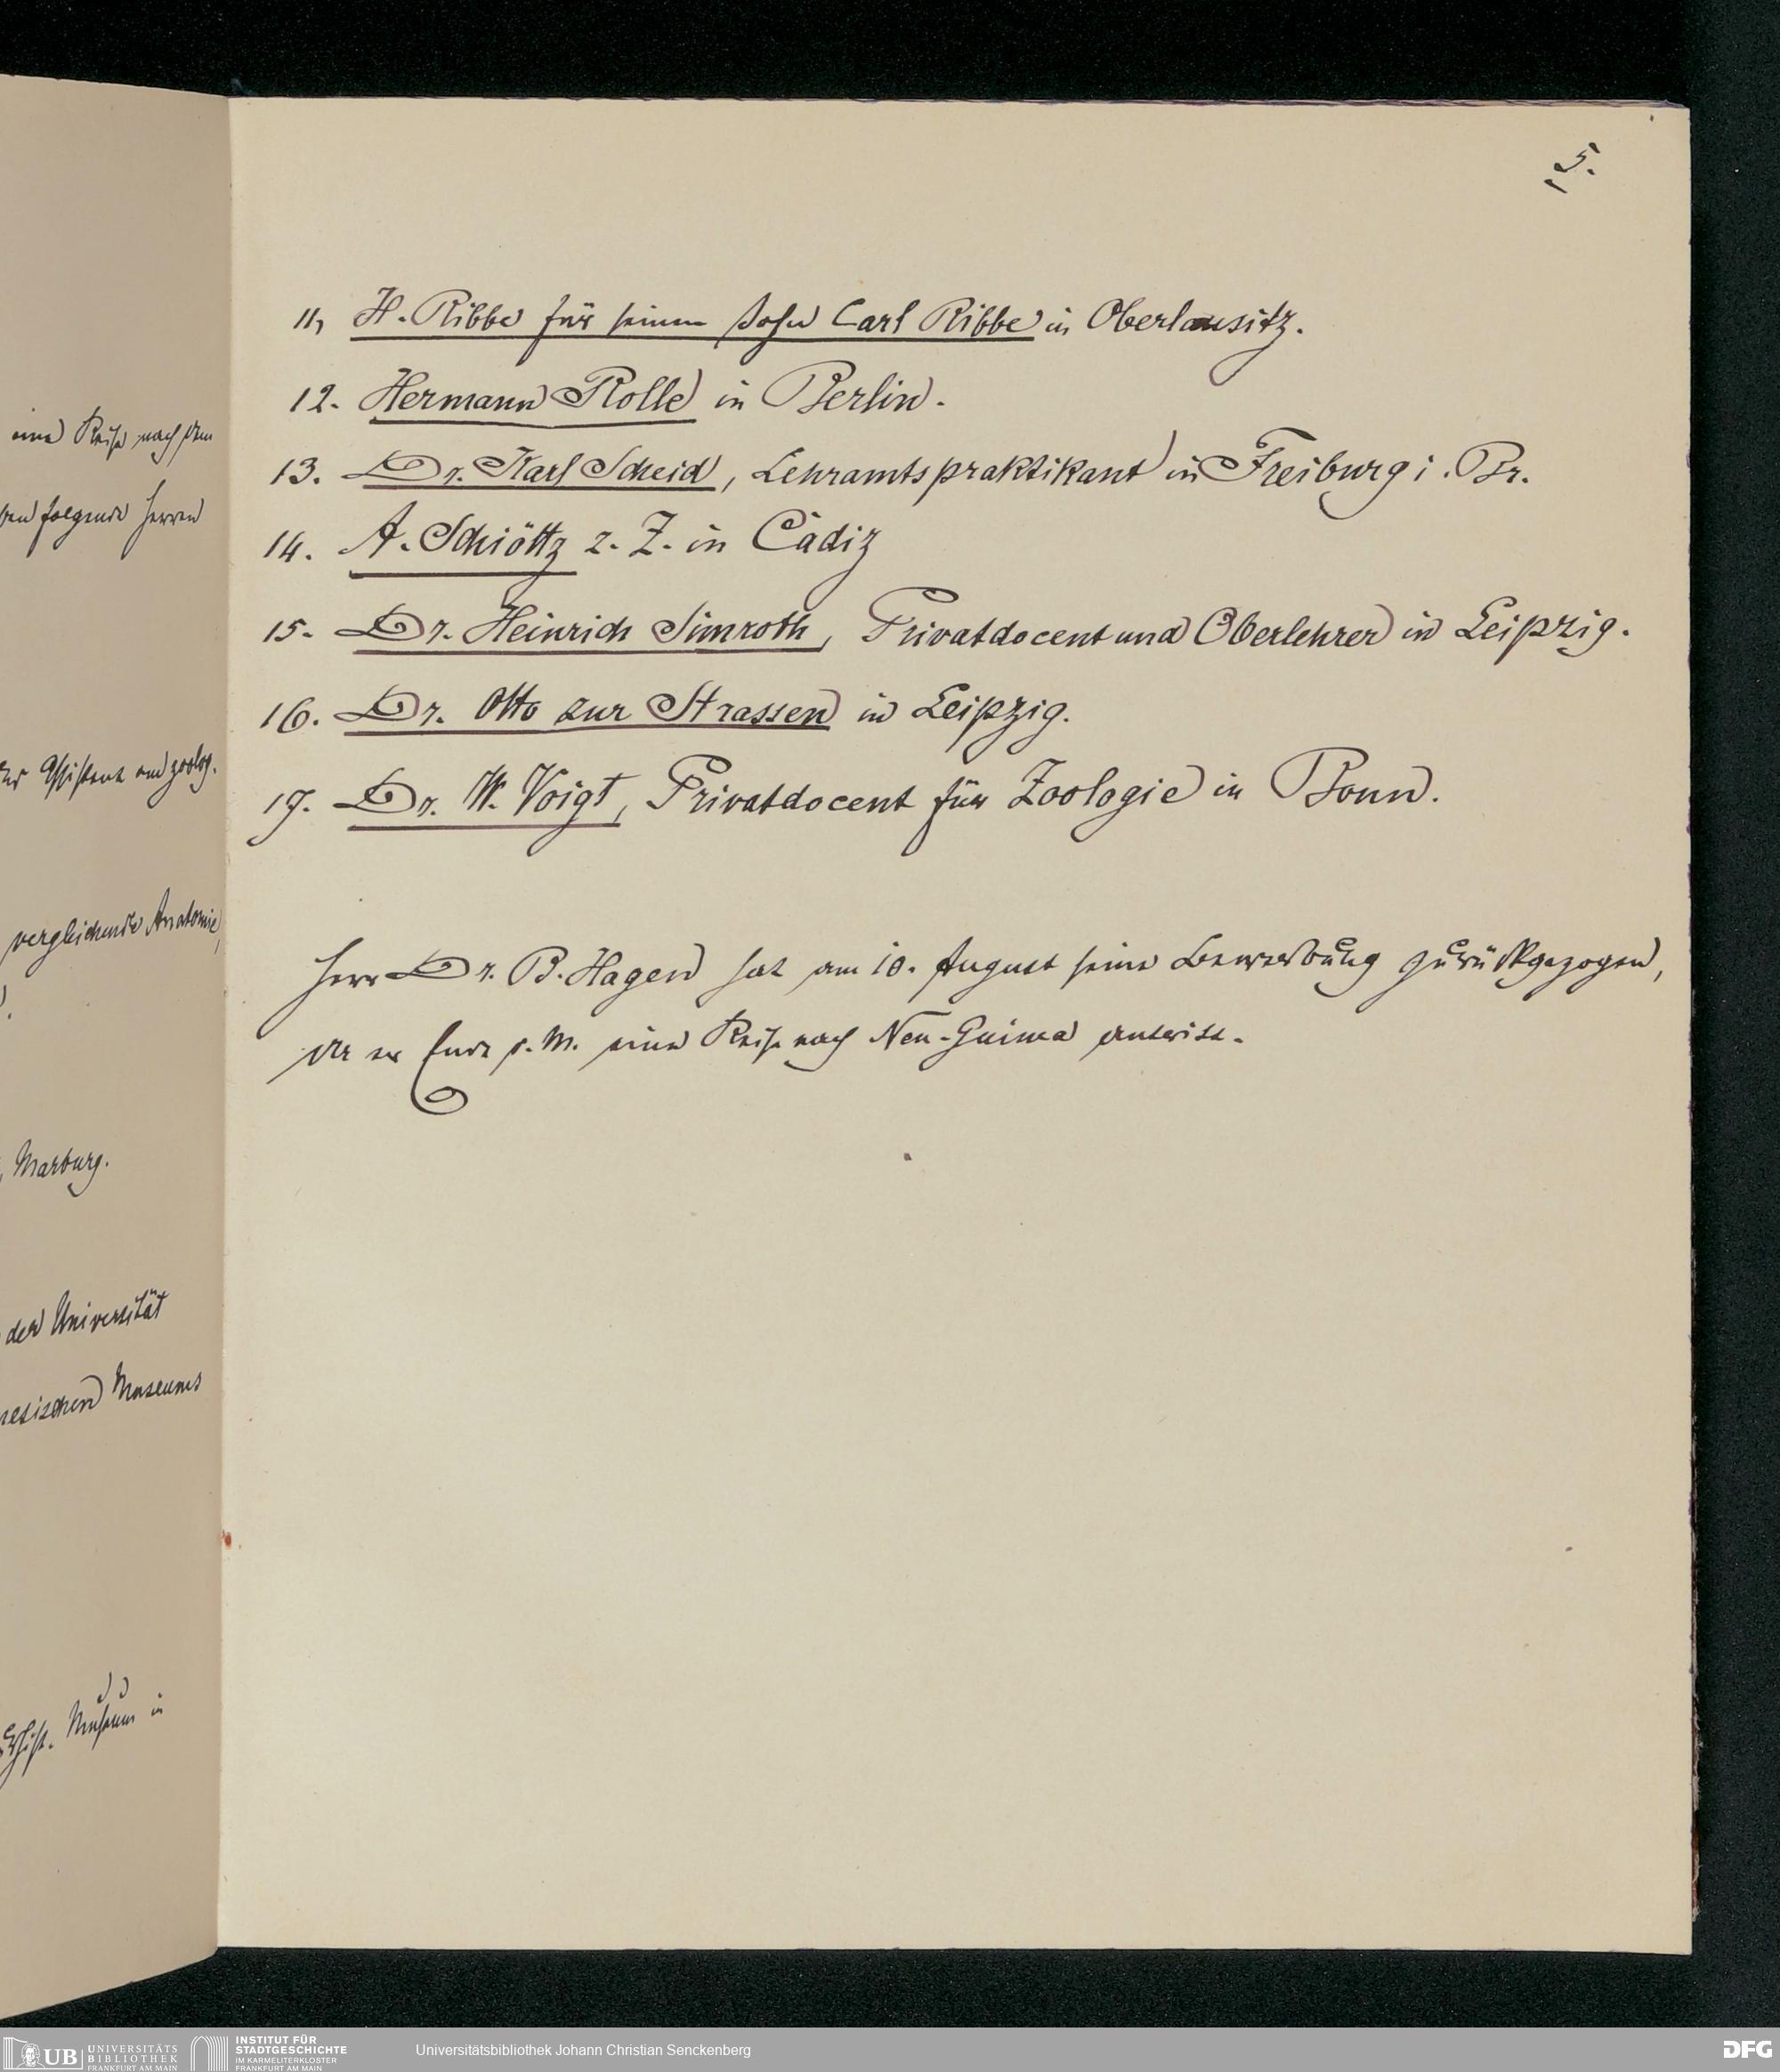 eine Reise nach dem
folgende Herren
Assistent am zoolog.
vergleichende Anatomie,
Marburg.
der Universität
Museums
Museum in
5.
11, H. Ribbe für seinen Sohn Carl Ribbe in Oberlausitz.
12. Hermann Rolle in Berlin.
13. Dr. Karl Scheid, Lehramtspraktikant in Freiburg i. Br.
14. A. Schiöttz z. Z. in Cádiz
15. Dr. Heinrich Simroth, Privatdocent und Oberlehrer in Leipzig.
16. Dr. Otto zur Strassen in Leipzig.
17. Dr. W. Voigt, Privatdocent für Zoologie in Bonn.
Herr Dr. B. Hagen hat am 10. August seine Bewerbung zurückgezogen,
da er Ende s. M. eine Reise nach Neu-Guinea antritt.
UB UNIVERSITÄTS
BIBLIOTHEK
FRANKFURT AM MAIN
INSTITUT FÜR
STADTGESCHICHTE
IM KARMELITERKLOSTER
FRANKFURT AM MAIN
Universitätsbibliothek Johann Christian Senckenberg
DFG